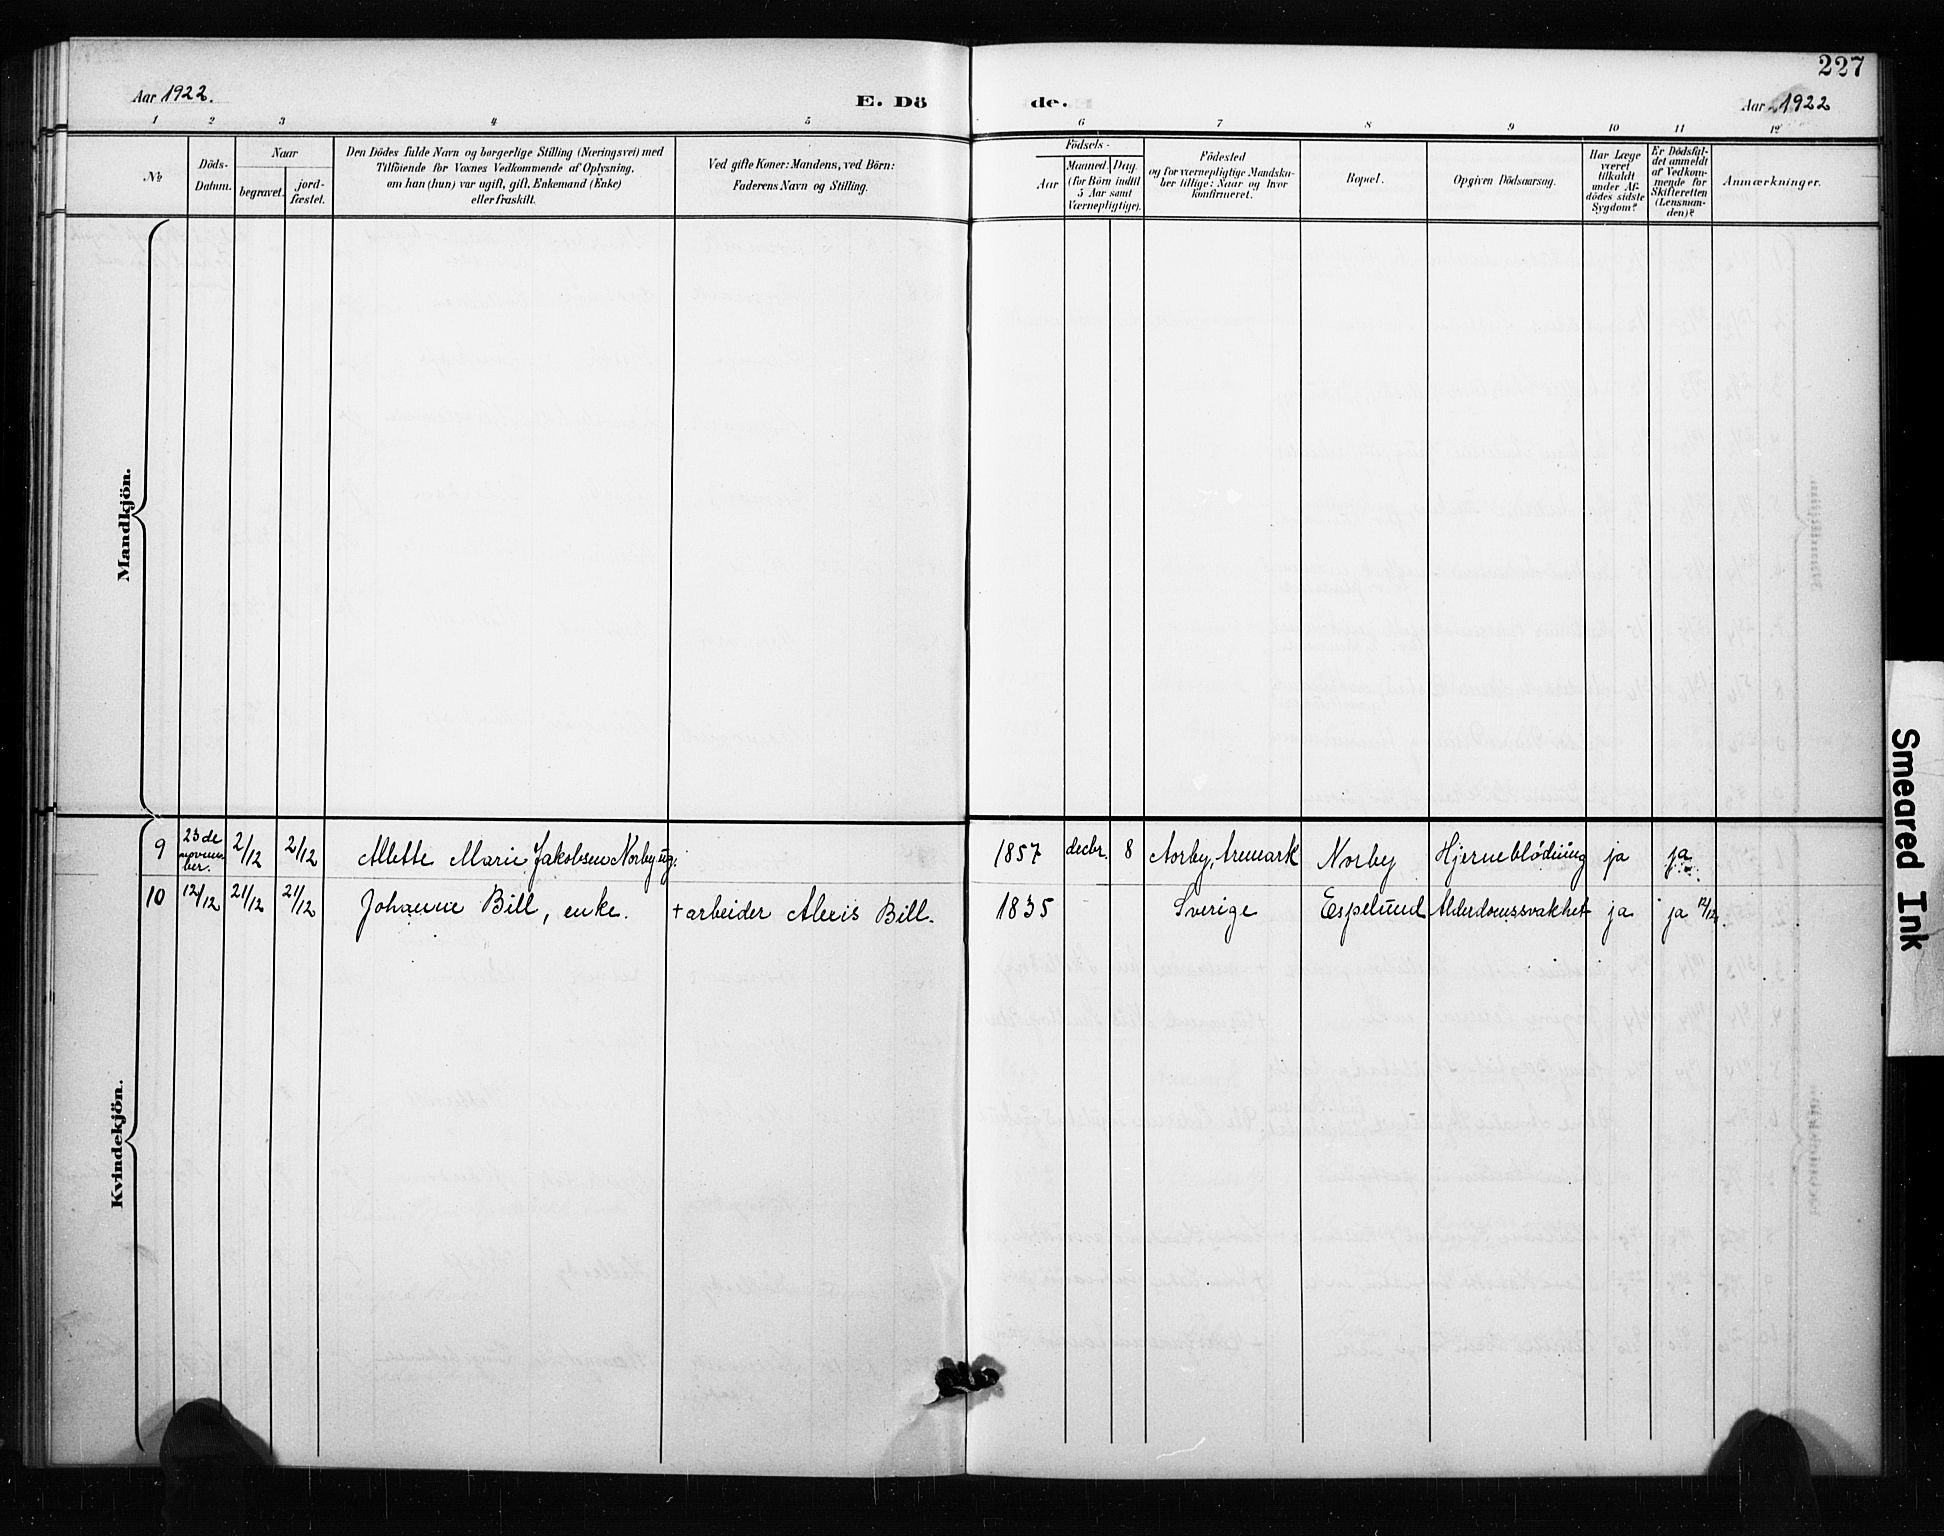 227
Aar 1922.
E. Dö
de.
Aar 1922
1 2 3 4 5 6 7 8 9 10 11 12
No
Döds-
Datum.
Naar
begravet.
jord-
fæstet.
Den Dödes fulde Navn og borgerlige Stilling (Næringsvei) med
Tilföiende för Voxnes Vedkommende af Oplysning,
om han (hun) var ugift, gift, Enkemand (Enke)
eller fraskilt.
Ved gifte Koner: Mandens, ved Börn:
Faderens Navn og Stilling.
Födsels-
Aar
Maaned.
Dag.
(for Börn indtil
5 Aar samt
Værnepligtige).
Födested
og for værnepligtige Mandska-
ber tillige: Naar og hvor
konfirmeret.
Bopæl.
Opgiven Dödsaarsag.
Har Læge
været
tilkaldt
under Af-
dödes sidste
Sygdom?
Er Dödsfal-
det anmeldt
af Vedkom-
mende for
Skifteretten
(Lensman-
den)?
Anmærkninger.
Mandkjön.
Kvindekjön.
9 23de novem-ber. 2/12 2/12 Alette Marie Jakobsen Norby, ug. 1857 decbr. 8 Norby, Aremark Norby Hjerneblödning ja ja
10 12/12 21/12 21/12 Johanne Bill, enke. + arbeider Alexis Bill. 1835 Sverige Espelund Alderdomssvakhet ja ja 12/12.
Smeared Ink